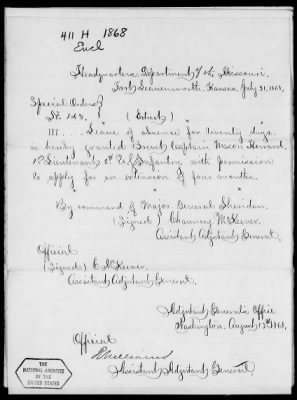 411 H 1868
Encl
Headquarters, Department of the Missouri,
Fort Leavenworth, Kansas, July 31, 1868.
Special Orders
No. 148. (Extract)
III... Leave of absence for twenty days,
is hereby granted Brevet Captain Mason Howard,
1st Lieutenant U.S. Infantry, with permission
to apply for an extension of four months.
By command of Major General Sheridan.
(Signed) Chauncey McKeever.
Assistant Adjutant General.
Official
(Signed) C. McKeever.
Assistant Adjutant General.
Adjutant General's Office
Washington, August 13th 1868.
Official
Williams
Assistant Adjutant General
THE
NATIONAL ARCHIVES
OF THE
UNITED STATES